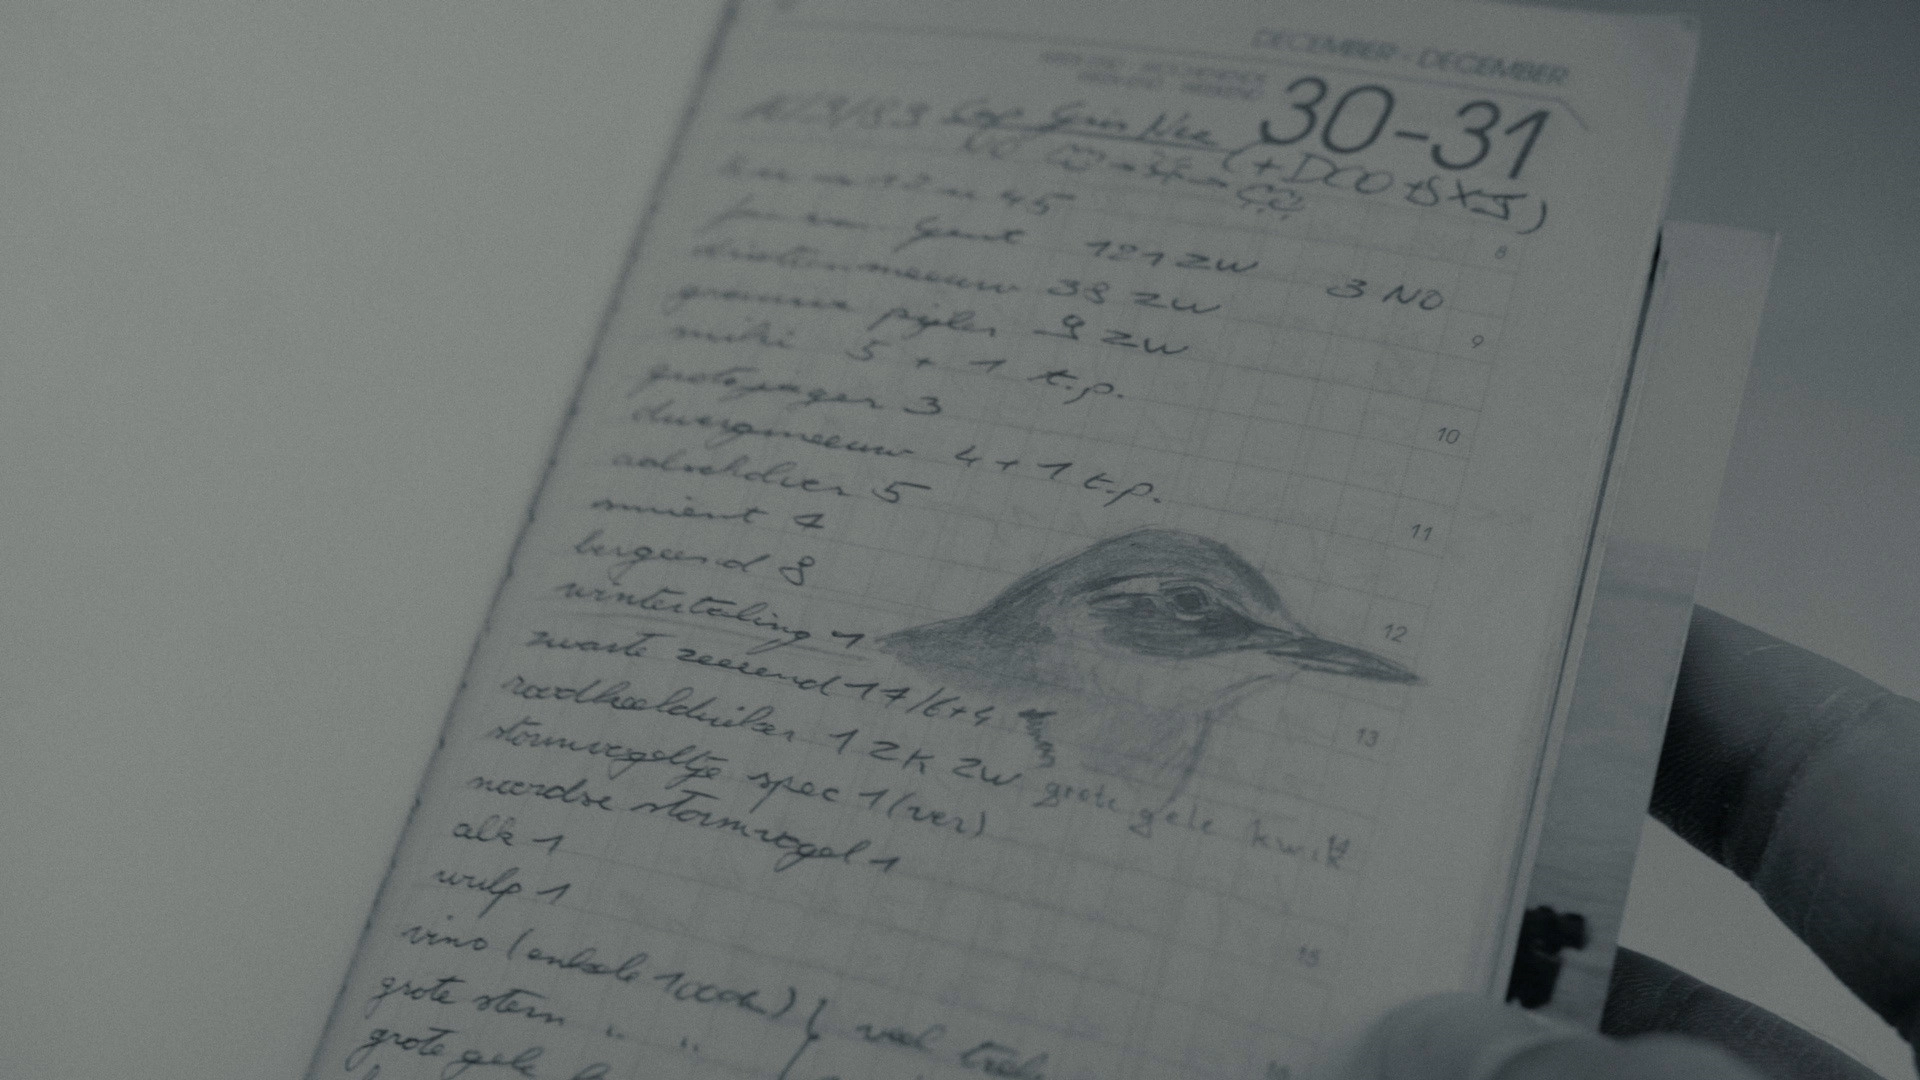 DECEMBER - DECEMBER
30-31
Cap Gris Nez (+DCO+SXJ)
jan van Gent 121 ZW 3 NO
drieteenmeeuw 39 ZW
grauwe pijler 9 ZW
miki 5 + 1 t.p.
grote jager 3
dwergmeeuw 4 + 1 t.p.
aalscholver 5
smient 4
bergeend 8
wintertaling 1
zwarte zeeeend 17/6+4
roodkeelduiker 1 ZK ZW
stormvogeltje spec 1 (ver)
grote gele kwik
noordse stormvogel 1
alk 1
wulp 1
visno (enkele 1000den) veel trek
grote stern " "
grote gele
8
9
10
11
12
13
14
15
16